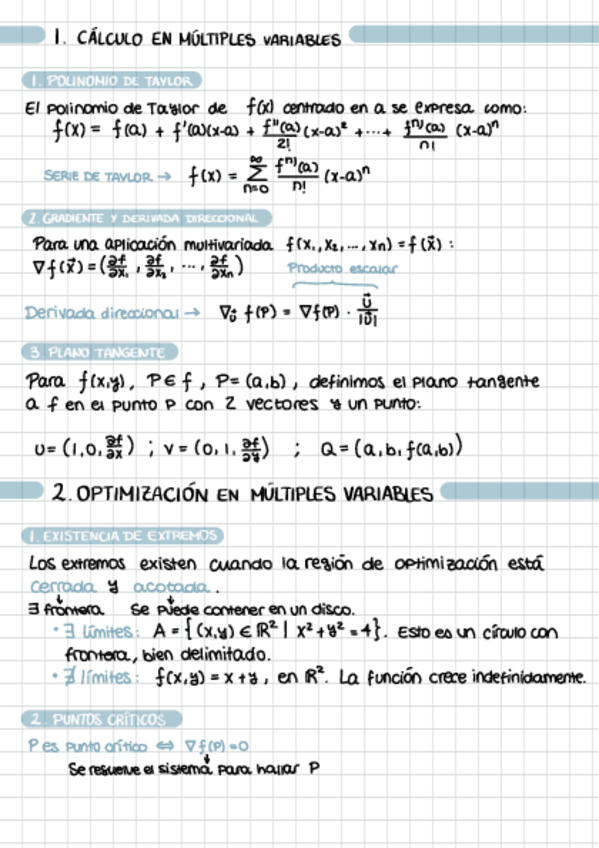 1. CÁLCULO EN MÚLTIPLES VARIABLES
1. POLINOMIO DE TAYLOR
El polinomio de Taylor de f(x) centrado en a se expresa como:
f(x) = f(a) + f'(a)(x-a) + f''(a)/2! (x-a)² + ... + fⁿ⁾(a)/n! (x-a)ⁿ
SERIE DE TAYLOR → f(x) = ∑_{n=0}^{∞} fⁿ⁾(a)/n! (x-a)ⁿ
2. GRADIENTE Y DERIVADA DIRECCIONAL
Para una aplicación multivariada f(x₁, x₂, ..., xn) = f(x⃗) :
∇f(x⃗) = (∂f/∂x₁, ∂f/∂x₂, ..., ∂f/∂xn) Producto escalar
Derivada direccional → ∇u⃗ f(P) = ∇f(P) · u⃗/|u⃗|
3. PLANO TANGENTE
Para f(x,y), P ∈ f, P = (a,b), definimos el plano tangente
a f en el punto P con 2 vectores y un punto:
U = (1,0,∂f/∂x) ; V = (0,1,∂f/∂y) ; Q = (a,b,f(a,b))
2. OPTIMIZACIÓN EN MÚLTIPLES VARIABLES
1. EXISTENCIA DE EXTREMOS
Los extremos existen cuando la región de optimización está
cerrada y acotada.
∃ frontera Se puede contener en un disco.
• ∃ límites: A = {(x,y) ∈ ℝ² | x² + y² = 4}. Esto es un círculo con
frontera, bien delimitado.
• ∄ límites: f(x,y) = x + y, en ℝ². La función crece indefinidamente.
2. PUNTOS CRÍTICOS
P es punto crítico ⇔ ∇f(P) = 0
Se resuelve el sistema para hallar P